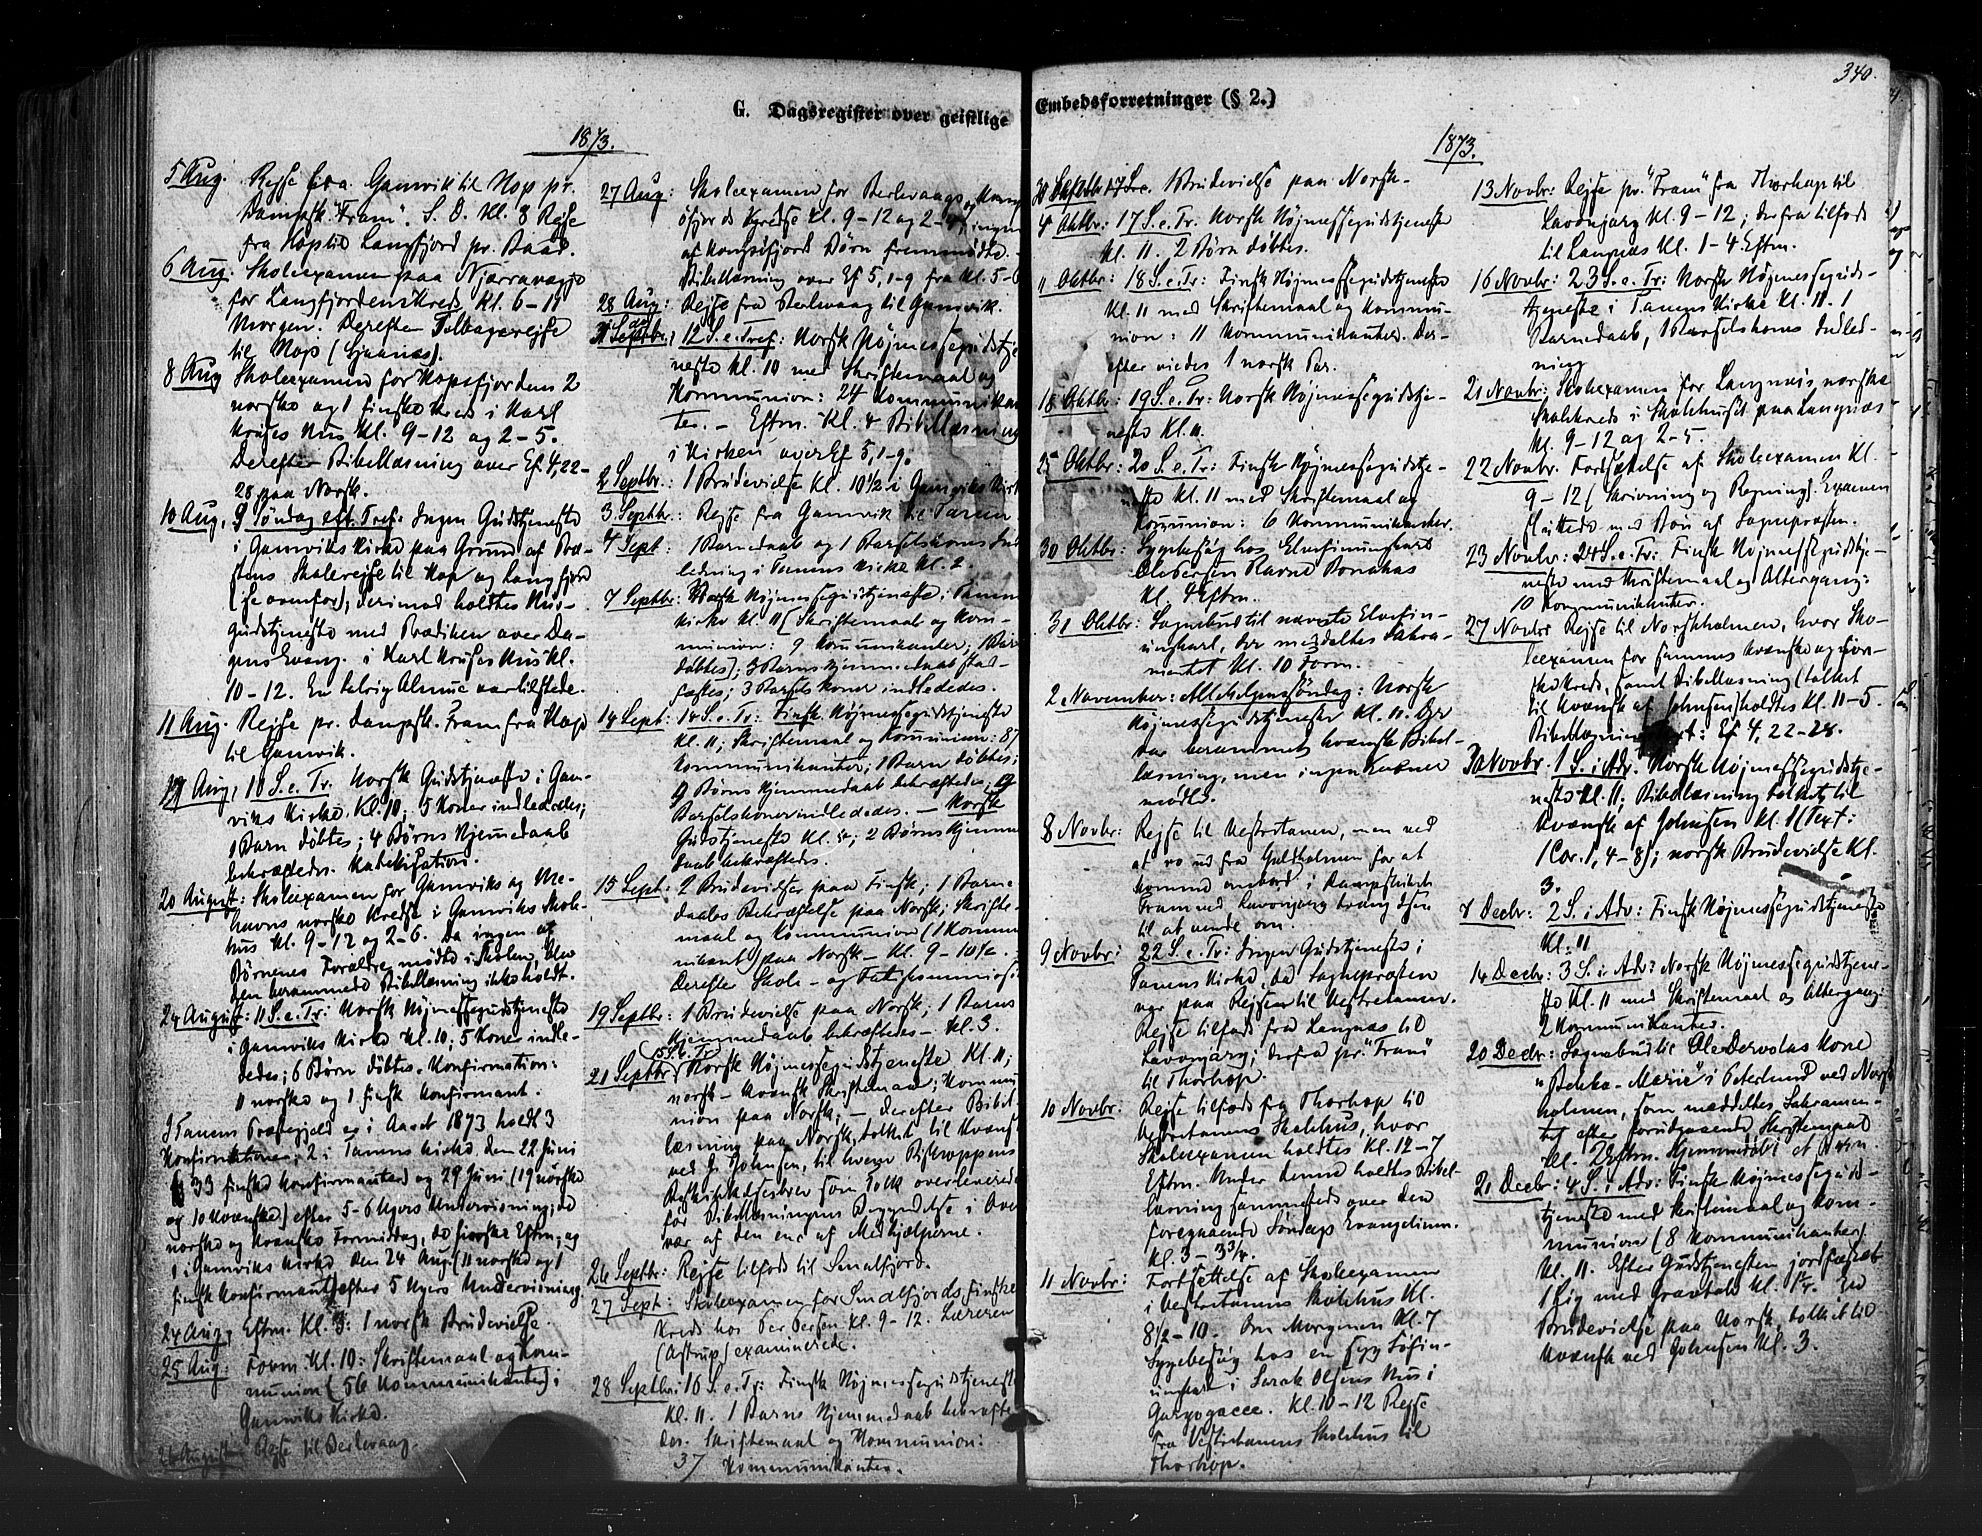 340.
G. Dagsregister over geistlige Embedsforretninger (§ 2.)
1873.
5 Aug. Rejse fra Gamvik til Hop pr.
Dampsk. "Fram". S. D. Kl. 8 Rejse
fra Hop til Langfjord pr. Baad.
6 Aug. Skoleexamen paa
for Langfjordens Kreds, Kl. 6-11
Morgen. Derefter Tilbagerejse
til Hop
8 Aug Skoleexamen for Hopsfjordens 2
norske og 1 finske Kreds i Karl
Kruses Hus Kl. 9-12 og 2-5.
Derefter Bibellæsning over Ef. 4, 22-
28 paa Norsk.
10 Aug, 9 Søndag eft. Tref: Ingen Gudstjeneste
i Gamviks Kirke paa Grund af Præ-
stens Skolerejse til Hop og Langfjord
(se ovenfor), derimod holdtes Hus-
gudstjeneste med Prædiken over Da-
gens Evang. i Karl Kruses Hus Kl.
10-12. En talrig Almue var tilstede.
11 Aug. Rejse pr. Dampsk. Fram fra Hop
til Gamvik.
17 Aug, 10 S. e. Tr. Norsk Gudstjeneste i Gam-
viks Kirke. Kl. 10; 5 Koner indlededes;
1 Barn døbtes; 4 Børns Hjemmedaab
bekræftedes. Katekisation.
20 August: Skoleexamen for Gamviks og Me-
havns norske Kredse i Gamviks Skole-
hus Kl. 9-12 og 2-6. Da ingen af
Børnenes Forældre mødte i Skolen, blev
den berammede Bibellæsning ikke holdt.
24 August: 11 S. e. Tr: Norsk Højmessegudstjeneste
i Gamviks Kirke Kl. 10; 5 Koner indle-
dedes; 6 Børn døbtes. Konfirmation:
11 norske og 1 finsk Konfirmant.
I Tanens Præstegjeld er i Aaret 1873 holdt 3
Konfirmationer; 2 i Tanens Kirke, den 22 Juni
33 finske Konfirmanter) og 29 Juni (19 norske
og 10 kvænske) efter 5-6 Ugers Undervisning; de
norske og kvænske Formiddag, de finske Eftm; og
1 i Gamviks Kirke den 24 Aug. (11 norske og 1
finsk Konfirmant) efter 5 Ugers Undervisning.
24 Aug, Eftm. Kl. 3: 1 norsk Brudevielse.
25 Aug: Form. Kl. 10: Skriftemaal og Kom-
munion (56 Kommunikanter) i
Gamviks Kirke.
26 August Rejse til Berlevaag.
27 Aug: Skoleexamen for Berlevaags og Kongs-
øfjords Kredse Kl. 9-12 og 2- ; ingen
af Kongsøfjords Børn fremmødte.
Bibellæsning over Ef 5, 1-9 fra Kl. 5-6
28 Aug: Rejse fra Berlevaag til Gamvik.
31 12 S. e. Tref: Norsk Højmessegudstje
neste Kl. 10 med Skriftemaal og
Kommunion: 24 Kommunikan
ter. - Eftm. Kl. 4 Bibellæsning
i Kirken over Ef 5, 1-9.
2 Septbr: 1 Brudevielse Kl. 10 1/2 i Gamviks Kirk
3 Septbr: Rejse fra Gamvik til Tanen
4 Sept: 1 Barnedaab og 1 Barselkones Ind
ledning i Tanens Kirke Kl. 2.
7 Septbr: Norsk Højmessegudstjeneste i Tanens
Kirke Kl. 11 (Skriftemaal og Kom-
munion: 9 Kommunikanter; 1 Barn
døbtes); 3 Børns Hjemmedaab stad-
fæstes; 3 Barselkoner indlededes.
14 Sept: 14 S. e. Tr: Finsk Højmessegudstjeneste
Kl. 11; Skriftemaal og Kommunion: 87
Kommunikanter; 1 Barn døbtes;
9 Børns Hjemmedaab bekræftedes,
Barselkoner indlededes. - Norsk
Gudstjeneste Kl. ; 2 Børns Hjemme
daab bekræftedes.
15 Sept: 2 Brudevielser paa Finsk; 1 Barne
daabs Bekræftelse paa Norsk; Skrifte-
maal og Kommunion (1 Kommu
nikant) paa Norsk - Kl. 9-10 1/2.
Derefter Skole- og Fattigkommission
19 Septbr: 1 Brudevielse paa Norsk; 1 Barns
Hjemmedaab bekræftedes - Kl. 3.
21 Septbr (15 S. e. Tr) Norsk Højmessegudstjeneste Kl. 11;
norsk-kvænsk Skriftemaal; Kommu
nion paa Norsk; - derefter Bibel
læsning paa Norsk, tolket til Kvænsk
ved J. Johnsen, til hvem Biskoppens
Beskikkelsesbrev som Tolk overleveredes
før Bibellæsningens Begyndelse i Over
vær af den ene af Medhjælperne.
26 Septbr: Rejse tilfods til Smalfjord.
27 Sept: Skoleexamen for Smalfjords finske
Kreds hos Per Persen Kl. 9-12. Læreren
(Astrup) examinerede.
28 Septbr: 16 S. e. Tr: Finsk Højmessegudstjeneste
Kl. 11. 1 Barns Hjemmedaab bekræfte
des. Skriftemaal og Kommunion:
37 Kommunikanter.
1873.
1 Brudevielse paa Norsk.
4 Oktbr: 17 S. e. Tr. Norsk Højmessegudstjeneste
Kl. 11. 2 Børn døbtes.
11 Oktbr: 18 S. e. Tr: Finsk Højmessegudstjeneste
Kl. 11 med Skriftemaal og Kommu-
nion: 11 Kommunikanter. Der-
efter viedes 1 norsk Par.
18 Oktbr: 19 S. e. Tr: Norsk Højmessegudstje-
neste Kl. 11.
25 Oktbr: 20 S. e. Tr: Finsk Højmessegudstje-
ste Kl. 11 med Skriftemaal og
Kommunion: 6 Kommunikanter.
30 Oktbr: Sygebesøg hos Elvefinungkarl
Ole Persen Ravna Bonakas
Kl. Eftm.
31 Oktbr: Sognebud til næste Elvefin-
ungkarl, der meddeltes Sakra-
mentet Kl. 10 Form.
2 November: Allehelgenssøndag: Norsk
Højmessegudstjeneste Kl. 11.
var berammet kvænsk Bibel-
læsning, men ingen Kvæner
mødte.
8 Novbr: Rejse til Vestretanen, men ved
at ro ud fra Guldholmen for at
komme ombord i Dampskibet
Fram ved Lavonjarg tvang
til at vende om.
9 Novbr: 22 S. e. Tr: Ingen Gudstjeneste i
Tanens Kirke, da Sognepræsten
var paa Rejsen til Vestretanen.
Rejse tilfods fra Langnæs til
Lavonjarg; derfra pr. "Fram"
til Thorhop.
10 Novbr: Rejse tilfods fra Thorhop til
Vestretanens Skolehus, hvor
Skoleexamen holdtes Kl. 12-7
Eftm. Under denne holdtes Bibel-
læsning sammesteds over den
foregaaende Søndags Evangelium.
Kl. 3-3 3/4.
11 Novbr: Fortsættelse af Skoleexamen
i Vestretanens Skolehus Kl.
8 1/2-10. Om Morgenen Kl. 7
Sygebesøg hos en syg Søfin-
ungkarl i Sarak Olsens Hus i
Kl. 10-12 Rejse
fra Vestretanens Skolehus til
Thorhop.
13 Novbr: Rejse pr. "Fram" fra Thorhop til
Lavonjarg Kl. 9-12; derfra tilfods
til Langnæs Kl. 1-4 Eftm.
16 Novbr: 23 S. e. Tr: Norsk Højmessegud-
stjeneste i Tanens Kirke Kl. 11. 1
Barnedaab, 1 Barselkones Indled-
ning
21 Novbr: Skoleexamen for Langnæs norske
Skolekreds i Skolehuset paa Langnæs
Kl. 9-12 og 2-5.
22 Novbr. Fortsættelse af Skoleexamen Kl.
9-12 (Skrivning og Regning). Examen
sluttedes med Bøn af Sognepræsten.
23 Novbr: 24 S. e. Tr: Finsk Højmessegudstje-
neste med Skriftemaal og Altergang:
10 Kommunikanter.
27 Novbr Rejse til Norskholmen, hvor Sko-
leexamen for sammes kvænske og nor-
ske Kreds, samt Bibellæsning (tolket
til Kvænsk af Johnsen) holdtes Kl. 11-5.
Bibellæsning : Ef 4, 22-28.
30 Novbr. 1 S. i Adv. Norsk Højmessegudstje-
neste Kl. 11; Bibellæsning tolket til
Kvænsk af Johnsen Kl. 1 (Text:
1 Cor. 1, 4-8); norsk Brudevielse Kl.
3.
7 Decbr: 2 S. i Adv: Finsk Højmessegudstjeneste
Kl. 11
14 Decbr: 3 S. i Adv: Norsk Højmessegudstjene-
ste Kl. 11 med Skriftemaal og Altergang:
2 Kommunikanter.
20 Decbr: Sognebud til Ole Dervolas Kone
"Bekka-Marie" i Østerlund ved Norsk
holmen, som meddeltes Sakramen-
tet efter forudgaaende Skriftemaal
Kl. 2 Eftm. Hjemmedøbt et Barn.
21 Decbr: 4 S. i Adv: Finsk Højmessegud-
tjeneste med Skriftemaal og Kom-
munion (8 Kommunikanter).
Kl. 11. Efter Gudstjenesten jordfæstet
1 Lig med Gravtale Kl. En
Brudevielse paa Norsk, tolket til
Kvænsk ved Johnsen Kl. 3.